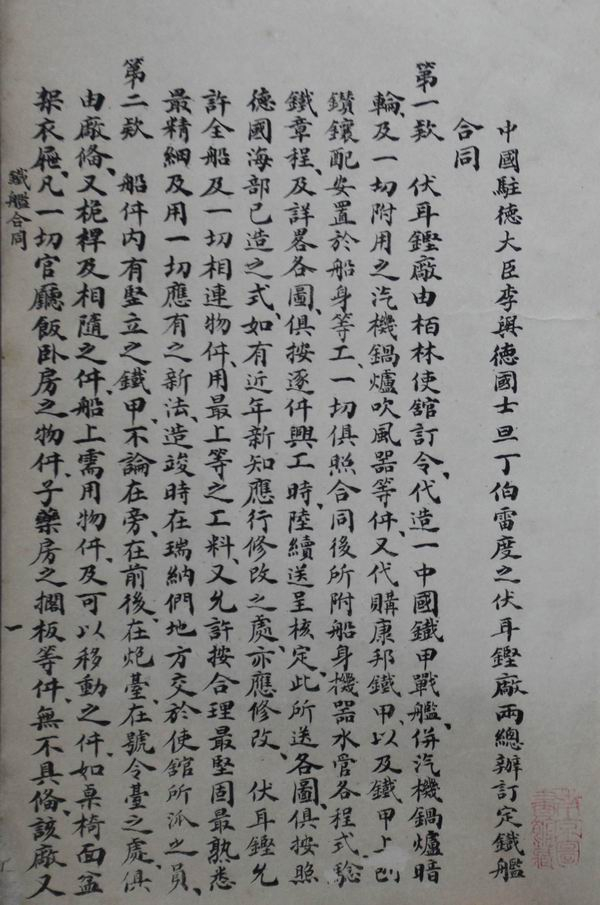 中國駐德大臣李與德國士旦丁伯雷度之伏耳鏗廠兩總辦訂定鐵艦
合同
第一款　伏耳鏗廠由栢林使舘訂令、代造一中國鐵甲戰艦、併汽機鍋爐暗
輪、及一切附用之汽機鍋爐吹風器等件、又代購康邦鐵甲、以及鐵甲上刨
鑽鑲配安置於船身等工、一切俱照合同後所附船身機器水管各程式、驗
鐵章程、及詳畧各圖、俱按逐件興工時、陸續送呈核定、此所送各圖、俱按照
德國海部已造之式、如有近年新知應行修改之處、亦應修改、　伏耳鏗允
許全船及一切相連物件、用最上等之工料、又允許按合理最堅固最熟悉
最精細及用一切應有之新法、造竣時在瑞納們地方交於使舘所派之員、
第二款　船件內有竪立之鐵甲、不論在旁、在前後、在炮臺、在號令臺之處、俱
由廠備、又桅桿及相隨之件、船上需用物件、及可以移動之件、如桌椅面盆
架衣㮞、凡一切官廳飯卧房之物件、子藥房之擱板等件、無不具備、該廠又
鐵艦合同
一